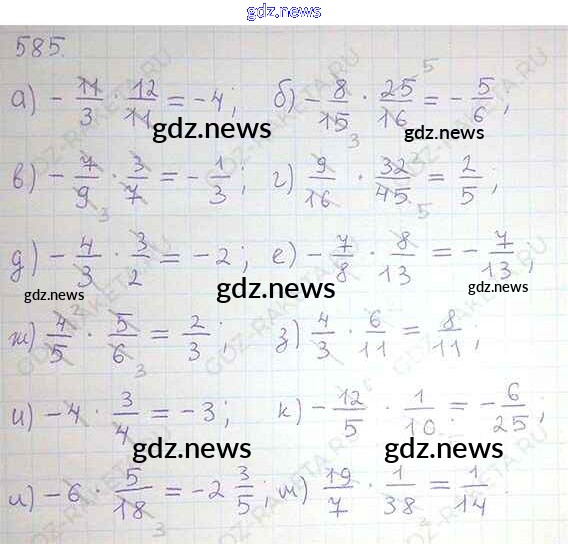 gdz.news
585.
а) - 11/3 · 12/11 = - 4; б) - 8/15 · 25/16 = - 5/6; 5 3
gdz.news gdz.news
в) - 7/9 · 3/7 = - 1/3; г) 9/16 · 32/45 = 2/5; 3 2 5
д) - 4/3 · 3/2 = - 2; е) - 7/8 · 8/13 = - 7/13;
gdz.news gdz.news gdz.news
ж) 4/5 · 5/6 = 2/3; з) 4/3 · 6/11 = 8/11; 2 3
и) - 4 · 3/4 = - 3; к) - 12/5 · 1/10 = - 6/25; 6
gdz.news gdz.news
л) - 6 · 5/18 = - 2 3/5; м) 19/7 · 1/38 = 1/14. 3 2
gdz.news gdz.news
GDZ-RAKETA.RU